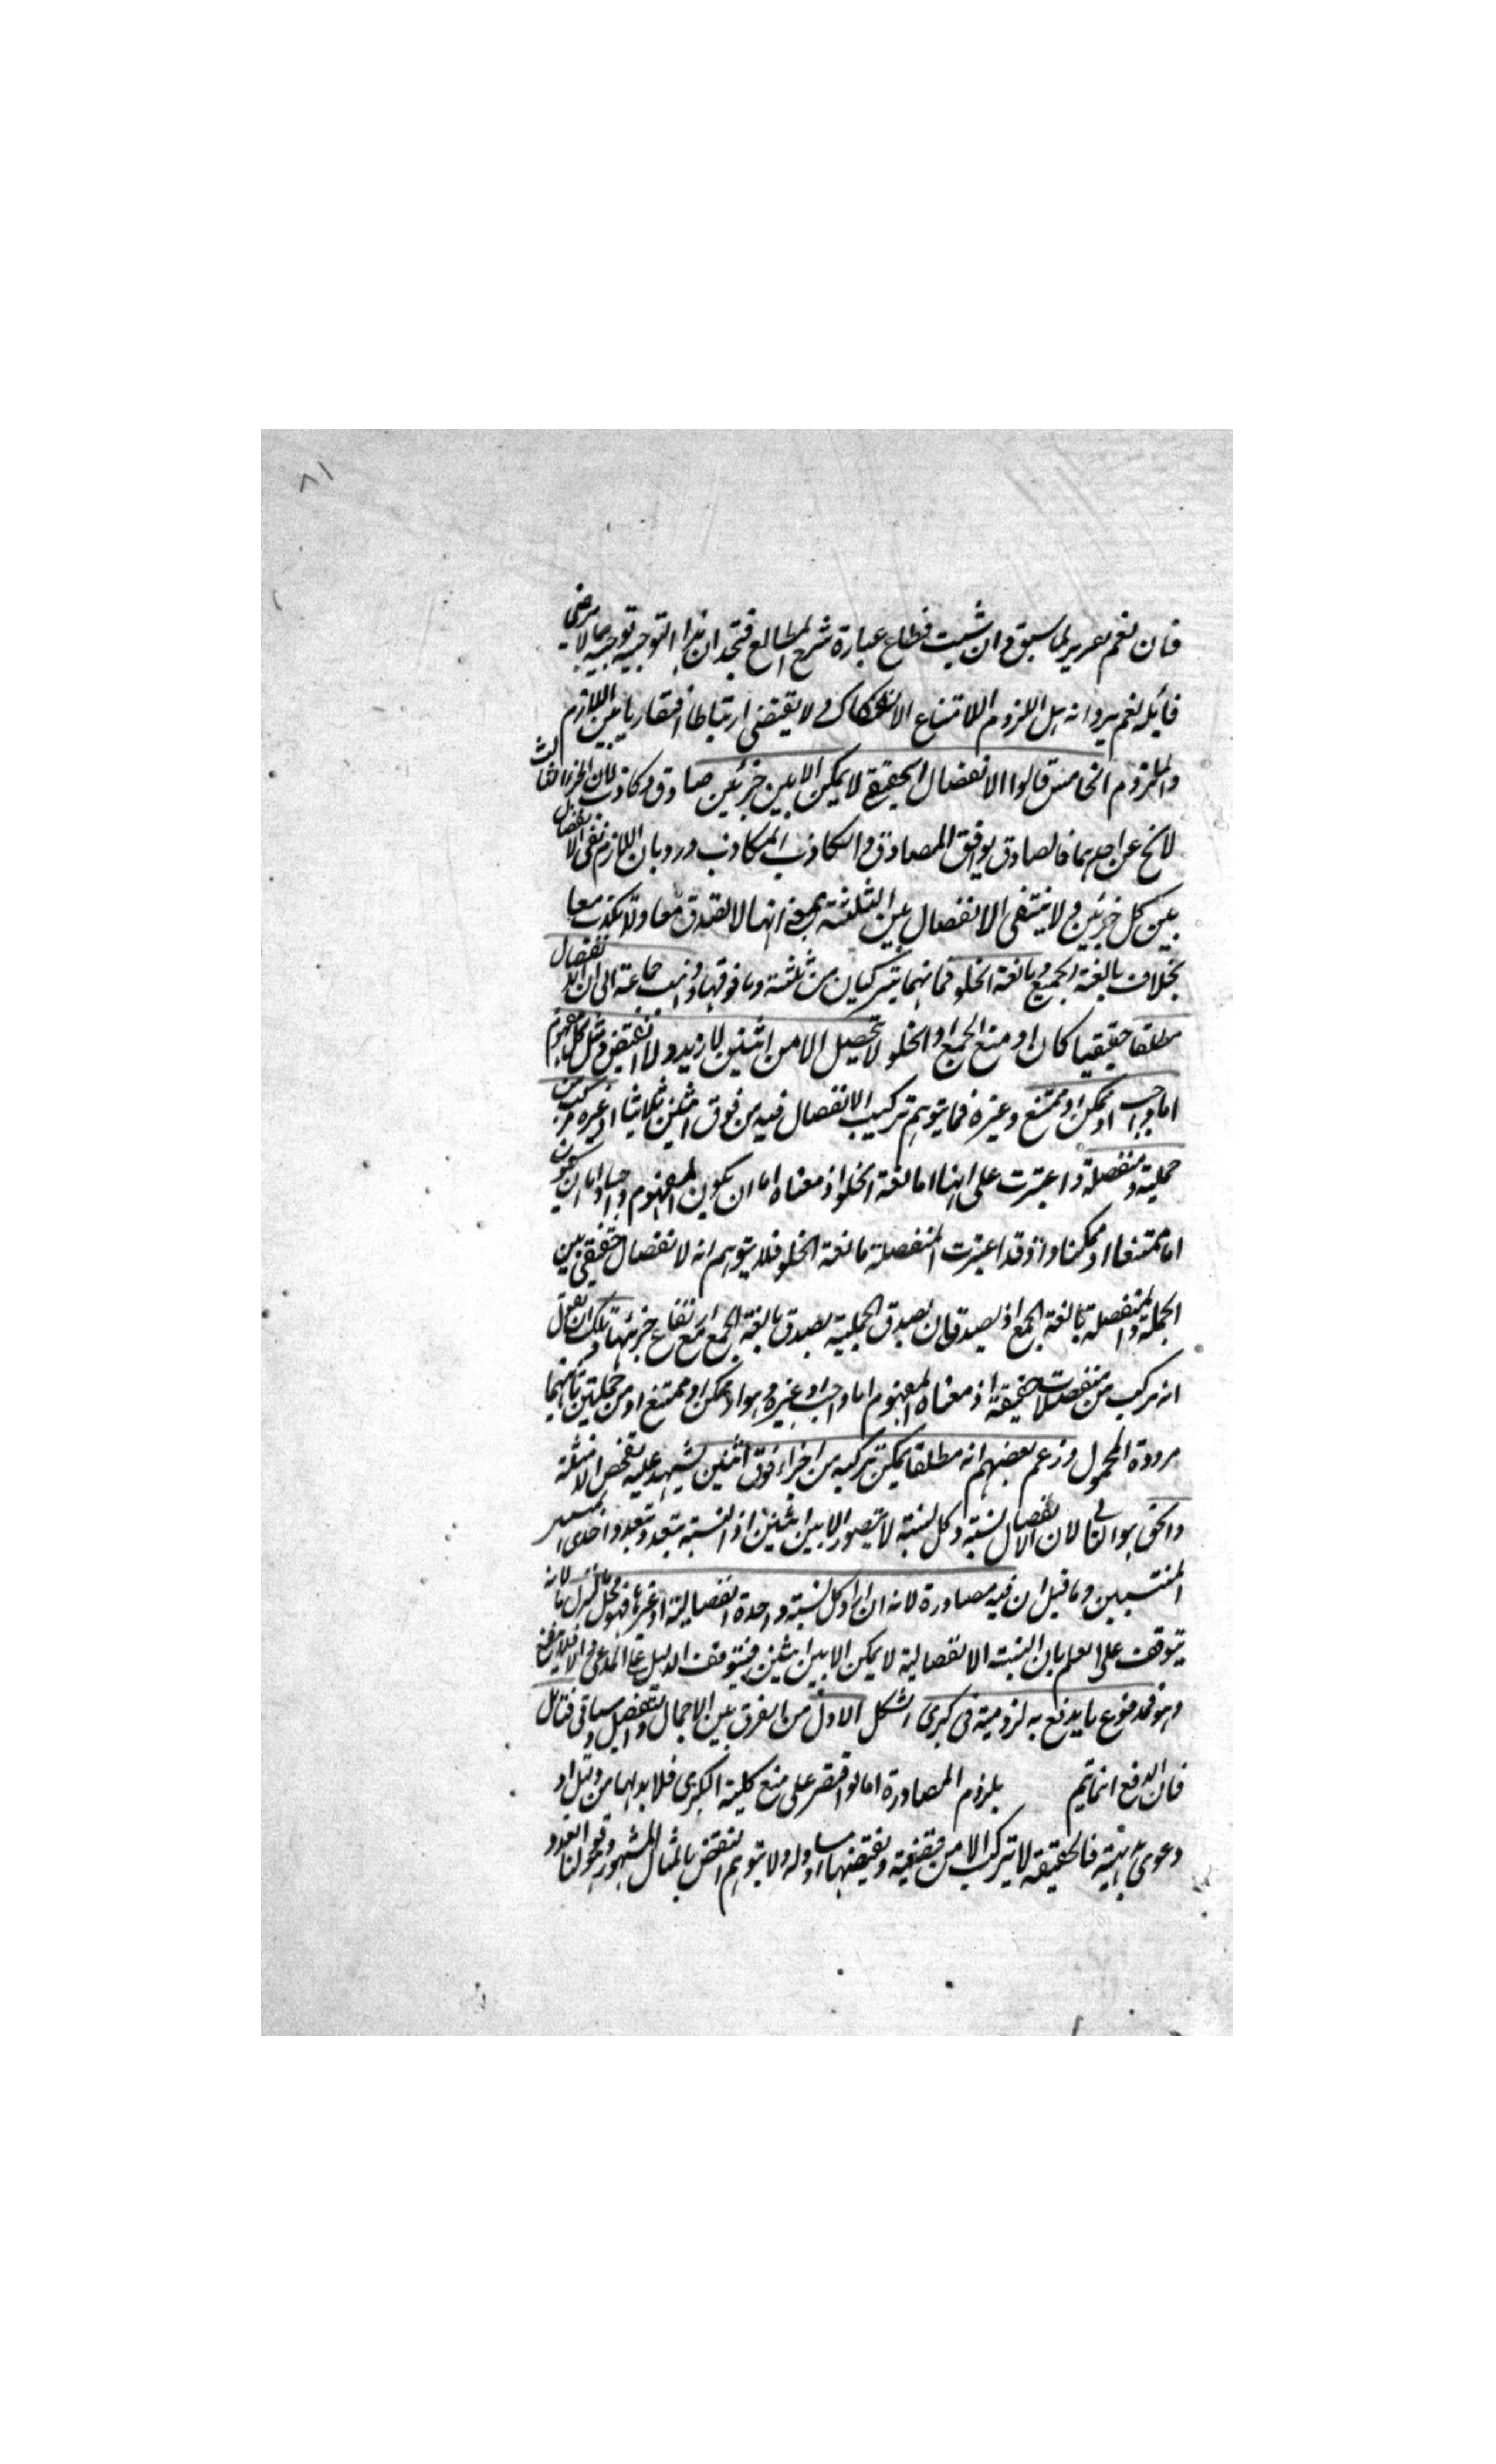 ٨١
فان نغم تقرير لما سبق وان شيت فطاع عبارة شرح المطالع فتجد ان هذا التوجيه توجيه بما لا يرضى
قائله نعم يرد انه هل اللزوم الا امتناع الانفكاك ولا يقتضي ارتباطا افتقاريا بين اللازم
والملزوم الخامس قالوا الانفصال الحقيقي لا يمكن الا بين جزئين صادق وكاذب لان الجزء الثالث
لا يخ عن احدهما فالصادق يوافق الصادق والكاذب الكاذب ورد بان اللازم نفى الانفصال
بين كل جزئين ولا ينتفى الانفصال بين الثلثة بمعنى انها لا تصدق معا ولا تكذب معا
بخلاف مانعة الجمع ومانعة الخلو فانهما يتركبان من ثلثة وما فوقها وذهب جماعة الى ان الانفصال
مطلقا حقيقيا كان او منع الجمع او الخلو لا تحصل الا من اثنين لا ازيد ولا انقص فمثل كل مفهوم
اما واجب او ممكن او ممتنع وغيره فما يتوهم تركيب الانفصال فيه من فوق اثنين ثلاثيا او غيره مركب من
حملية ومنفصلة واعتبرت على انها مانعة الخلو اذ معناه اما ان يكون المفهوم واجبا واما ان يكون
اما ممتنعا او ممكنا واذ قد اعتبرت المنفصلة مانعة الخلو فلا يتوهم انه لا انفصال حقيقي بين
الحملية والمنفصلة مانعة الجمع اذ يصدقان بصدق الحملية بصدق مانعة الجمع مع ارتفاع جزئيها ولك ان تقول
انه مركب من منفصلات حقيقة اذ معناه المفهوم اما واجب او غيره وهو اما ممكن او ممتنع او من حمليتين ثانيهما
مرددة المحمول وزعم بعضهم انه مطلقا يمكن تركيبه من اجزاء فوق اثنين يشهد عليه تفحص الامثلة
والحق هو الثاني لان الانفصال نسبة وكل نسبة لا تتصور الا بين اثنين اذ النسبة تتعدد بتعدد احدى
المنتسبين وما قيل ان فيه مصادرة لانه ان اراد كل نسبة واحدة انفصالية او غيرها فهو محل النزاع لانه
يتوقف على العلم بان النسبة الانفصالية لا يمكن الا بين اثنين فيتوقف الدليل على المدعى والا فلا ينتج
وهو مدفوع بما يدفع به لزومية في كبرى الشكل الاول من الفرق بين الاجمال والتفصيل وسياتى فتامل
فان الدفع انما يتم بلزوم المصادرة اما لو اقتصر على منع كلية الكبرى فلا بد لها من دليل او
دعوى بداهته فالحقيقة لا تتركب الا من قضية ونقيضها او مساو له ولا يتوهم النقض بالمثال المشهور وهو قولنا العدد